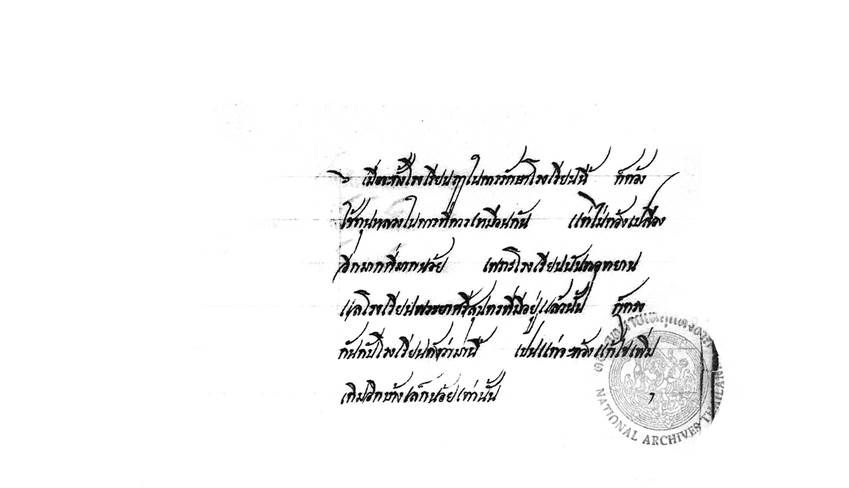 เมื่อจะตั้งโรงเรียน ในการรักษาโรงเรียนนี้ ก็ต้อง
ใช้ทุนหลวงในการที่ควรเหมือนกัน แต่ไม่ต้องเปลือง
อีกมากกี่มากน้อย เพราะโรงเรียนนันทอุทยาน
แลโรงเรียนพระยาศรีสุนทรที่มีอยู่แล้วนั้น ก็ตรง
กันกับโรงเรียนดังว่ามานี้ เปนแต่จะต้องแก้ไขเพิ่ม
เติมอีกบ้างเล็กน้อยเท่านั้น
หอจดหมายเหตุแห่งชาติ
NATIONAL ARCHIVES THAILAND